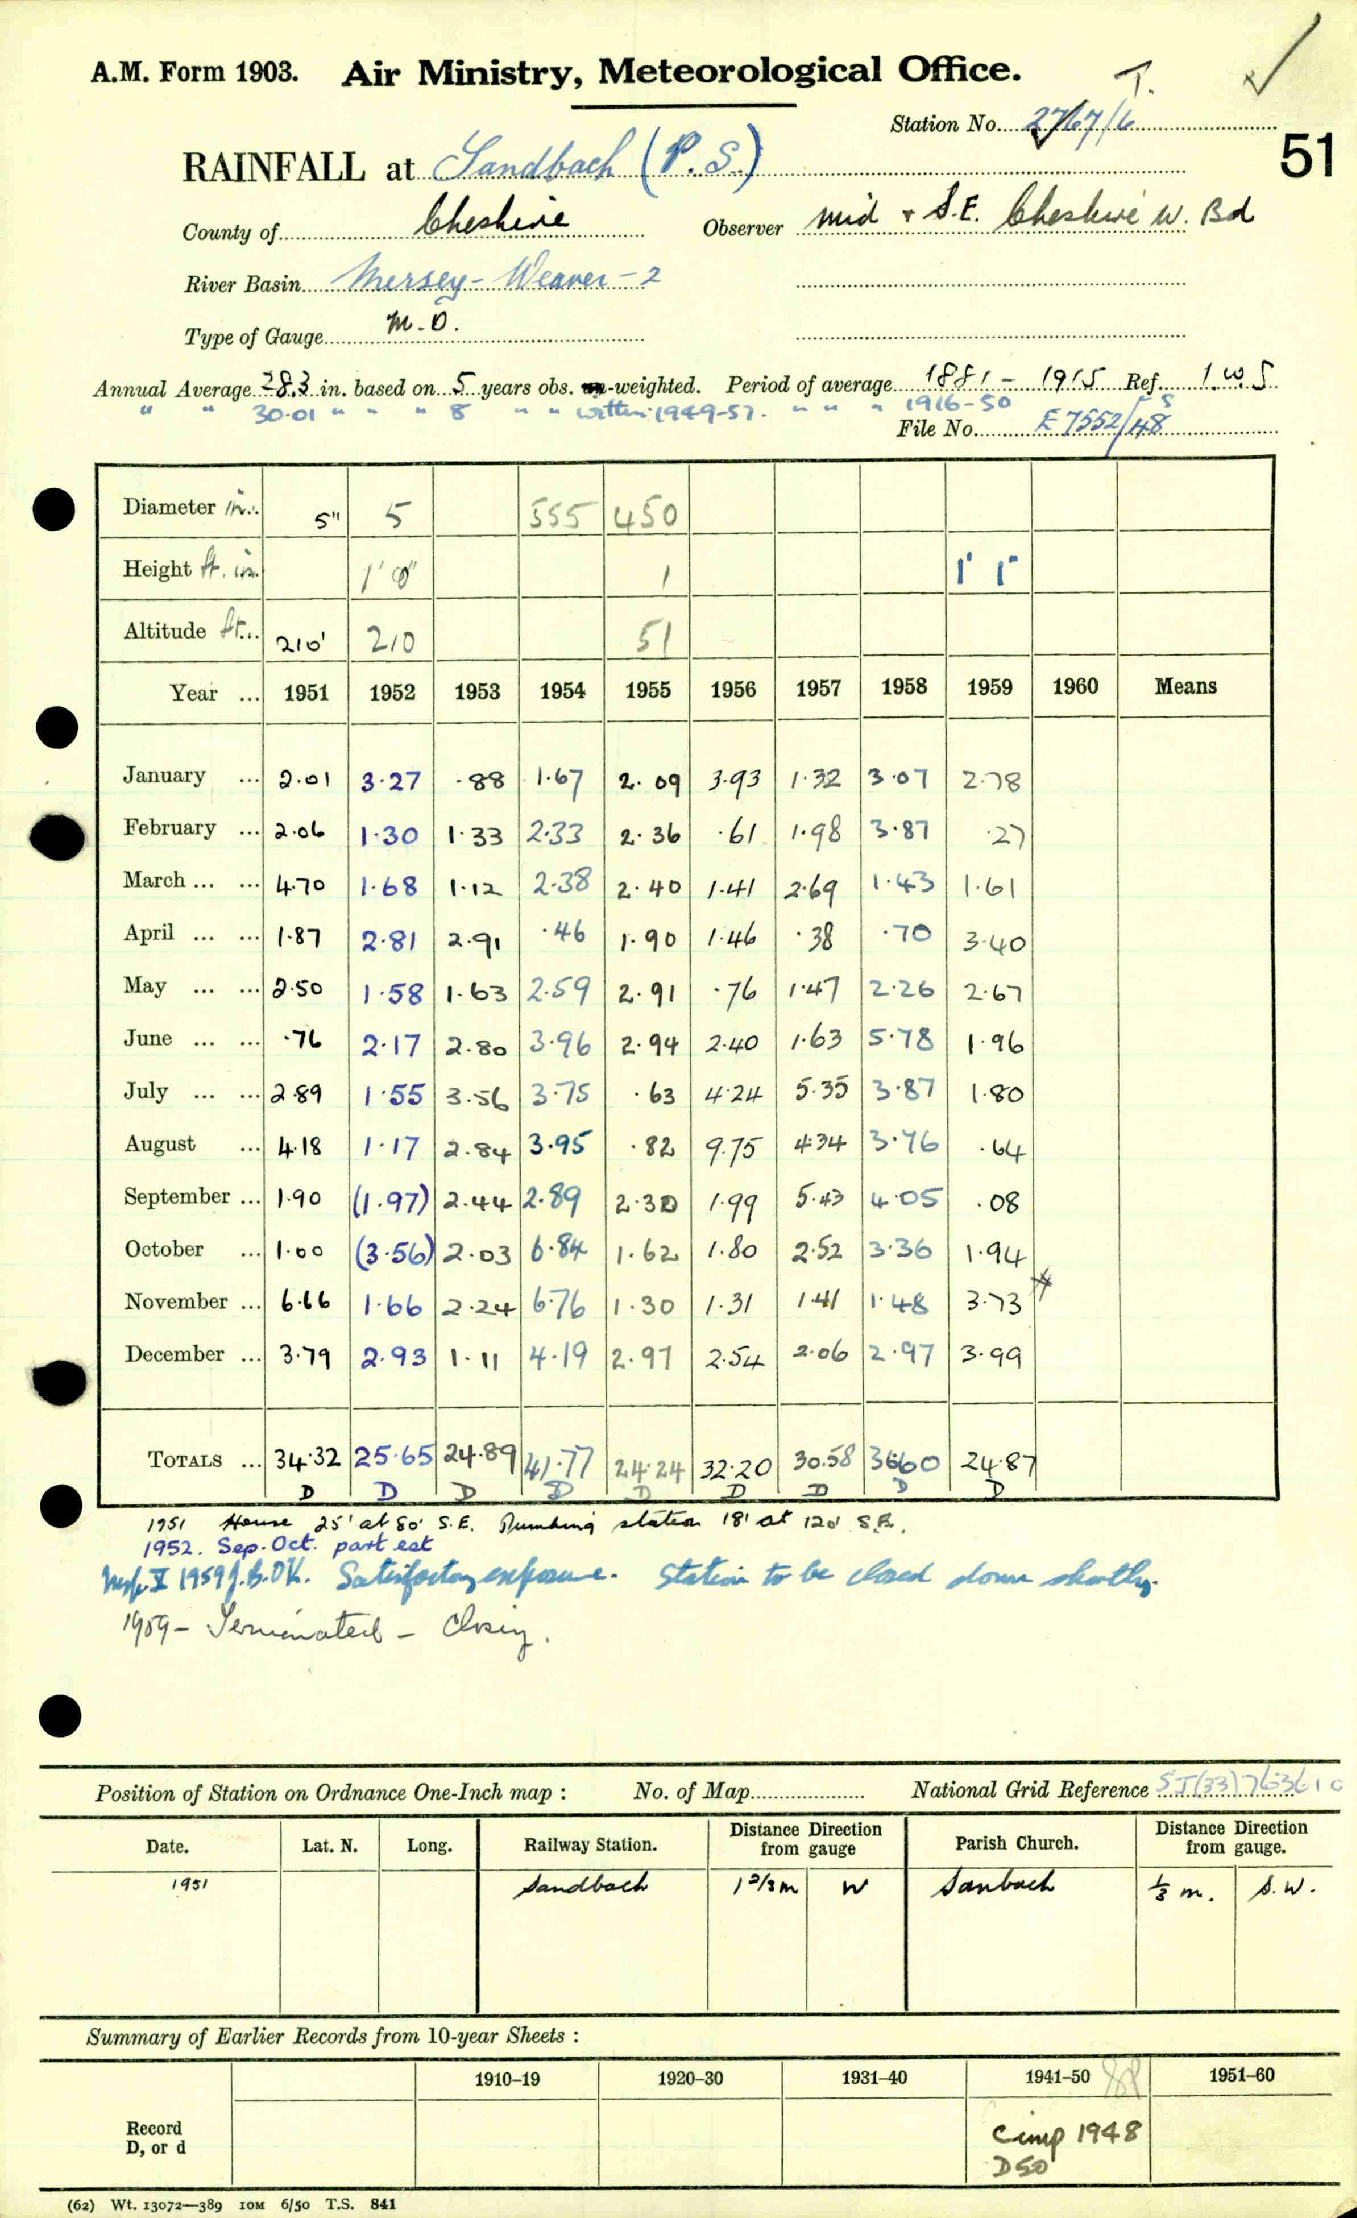 A.M. Form 1903. Air Ministry, Meteorological Office. T.
Station No. 2767/6
51
RAINFALL at Sandbach (P.S.)
County of Cheshire Observer Mid + S.E. Cheshire W. Bd
River Basin Mersey-Weaver-2
Type of Gauge M.O.
Annual Average 28.3 in. based on 5 years obs. -weighted. Period of average 1881 - 1915 Ref. 1.W.S.
" " 30.01 " " " 8 " " within 1949-57. " " " 1916-50
File No. E7552/48
Diameter in. 5" 5 555 450
Height ft. in. 1'0" 1 1' 1"
Altitude ft. 210' 210 51
Year ... 1951 1952 1953 1954 1955 1956 1957 1958 1959 1960 Means
January ... 2.01 3.27 .88 1.67 2.09 3.93 1.32 3.07 2.78
February ... 2.06 1.30 1.33 2.33 2.36 .61 1.98 3.87 .27
March ... ... 4.70 1.68 1.12 2.38 2.40 1.41 2.69 1.43 1.61
April ... ... 1.87 2.81 2.91 .46 1.90 1.46 .38 .70 3.40
May ... ... 2.50 1.58 1.63 2.59 2.91 .76 1.47 2.26 2.67
June ... ... .76 2.17 2.80 3.96 2.94 2.40 1.63 5.78 1.96
July ... ... 2.89 1.55 3.56 3.75 .63 4.24 5.35 3.87 1.80
August ... 4.18 1.17 2.84 3.95 .82 9.75 4.34 3.76 .64
September ... 1.90 (1.97) 2.44 2.89 2.30 1.99 5.43 4.05 .08
October ... 1.00 (3.56) 2.03 6.84 1.62 1.80 2.52 3.36 1.94
November ... 6.66 1.66 2.24 6.76 1.30 1.31 1.41 1.48 3.73
December ... 3.79 2.93 1.11 4.19 2.97 2.54 2.06 2.97 3.99
Totals ... 34.32 25.65 24.89 41.77 24.24 32.20 30.58 36.60 24.87
D D D D D D D D D
1951 House 25' at 80' S.E. Pumping station 18' at 120' S.E.
1952. Sep. Oct. part est
Insp. X 1959 J.B. OK. Satisfactory exposure. Station to be closed down shortly.
1959 - Terminated - Closing.
Position of Station on Ordnance One-Inch map : No. of Map National Grid Reference SJ(33)763610
Date. Lat. N. Long. Railway Station. Distance from Direction gauge Parish Church. Distance from Direction gauge.
1951 Sandbach 1 2/3 m W Sanbach 1/3 m. S.W.
Summary of Earlier Records from 10-year Sheets :
1910–19 1920–30 1931–40 1941–50 1951–60
Record
D, or d
Comp 1948
D50
(62) Wt. 13072—389 10M 6/50 T.S. 841